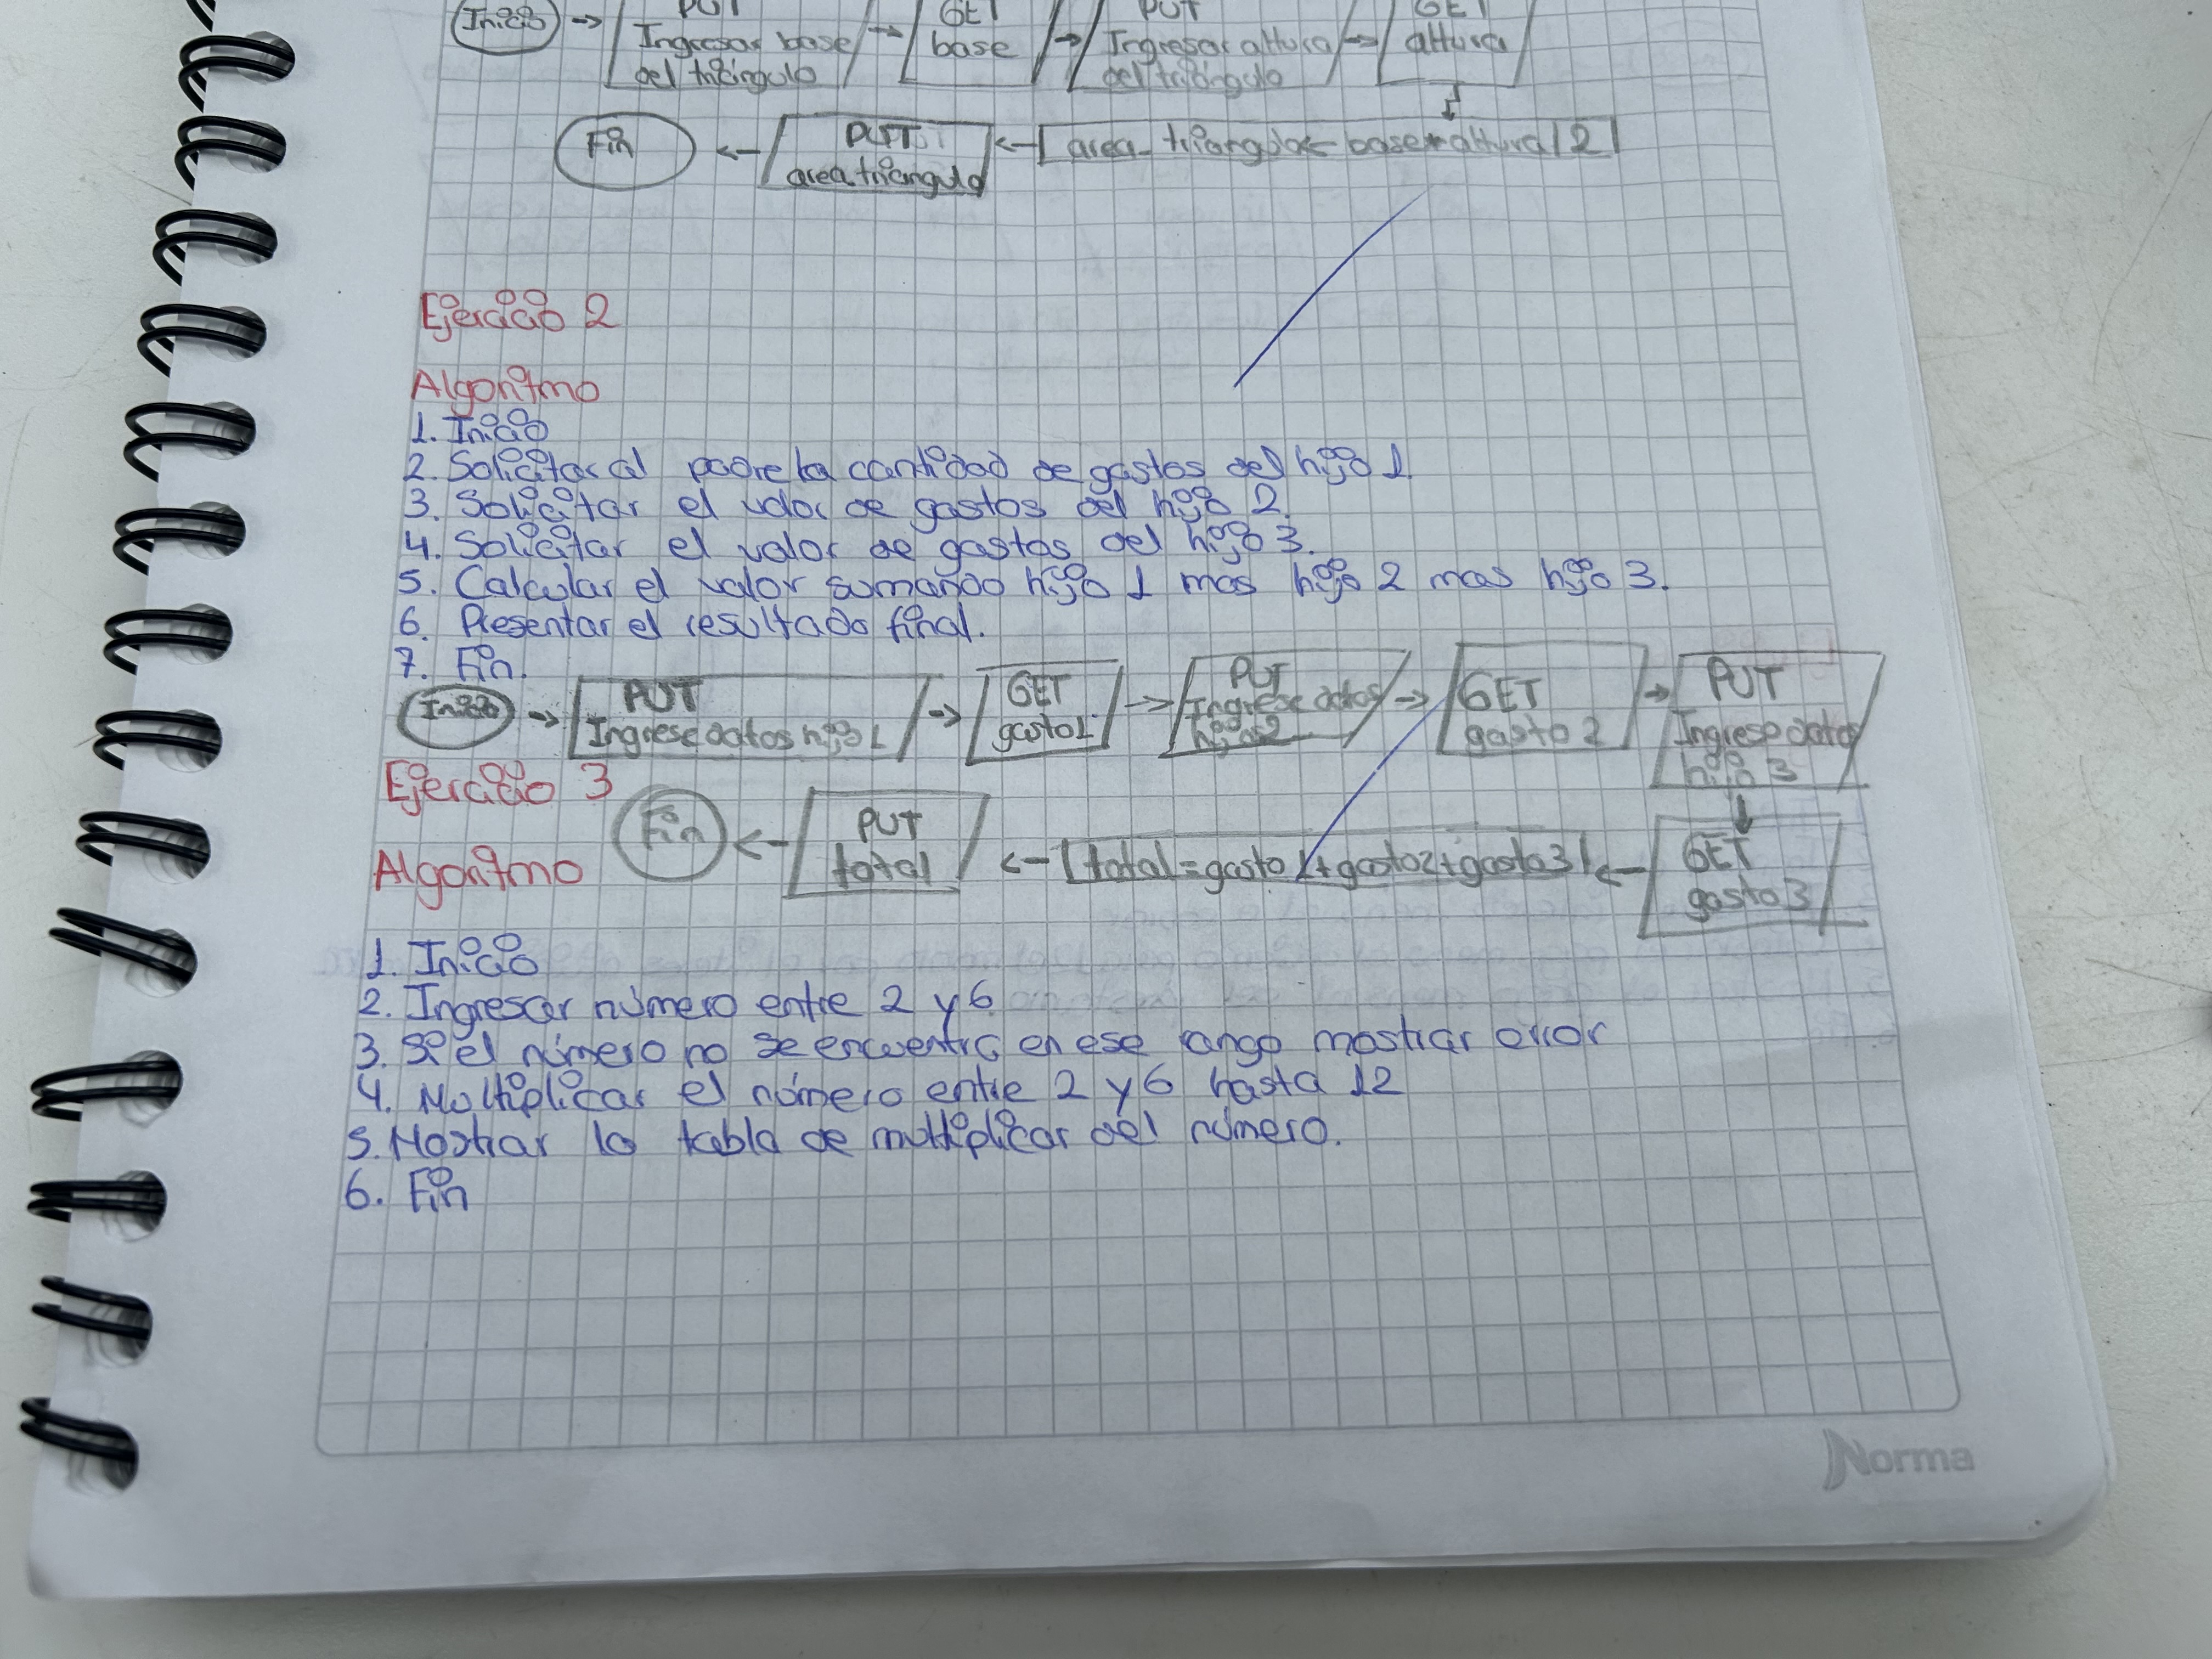 Inicio → PUT Ingresar base del triángulo → GET base → PUT Ingresar altura del triángulo → GET altura
Fin ← PUT area triángulo ← area_triangulo ← base * altura / 2
Ejercicio 2
Algoritmo
1. Inicio
2. Solicitar al padre la cantidad de gastos del hijo 1.
3. Solicitar el valor de gastos del hijo 2.
4. Solicitar el valor de gastos del hijo 3.
5. Calcular el valor sumando hijo 1 mas hijo 2 mas hijo 3.
6. Presentar el resultado final.
7. Fin.
Inicio → PUT Ingrese datos hijo 1 → GET gasto1 → PUT Ingrese datos hijo 2 → GET gasto 2 → PUT Ingrese datos hijo 3
Ejercicio 3
Fin ← PUT total ← total = gasto 1 + gasto2 + gasto3 ← GET gasto 3
Algoritmo
1. Inicio
2. Ingresar número entre 2 y 6
3. Si el número no se encuentra en ese rango mostrar error
4. Multiplicar el número entre 2 y 6 hasta 12
5. Mostrar la tabla de multiplicar del número.
6. Fin
Norma